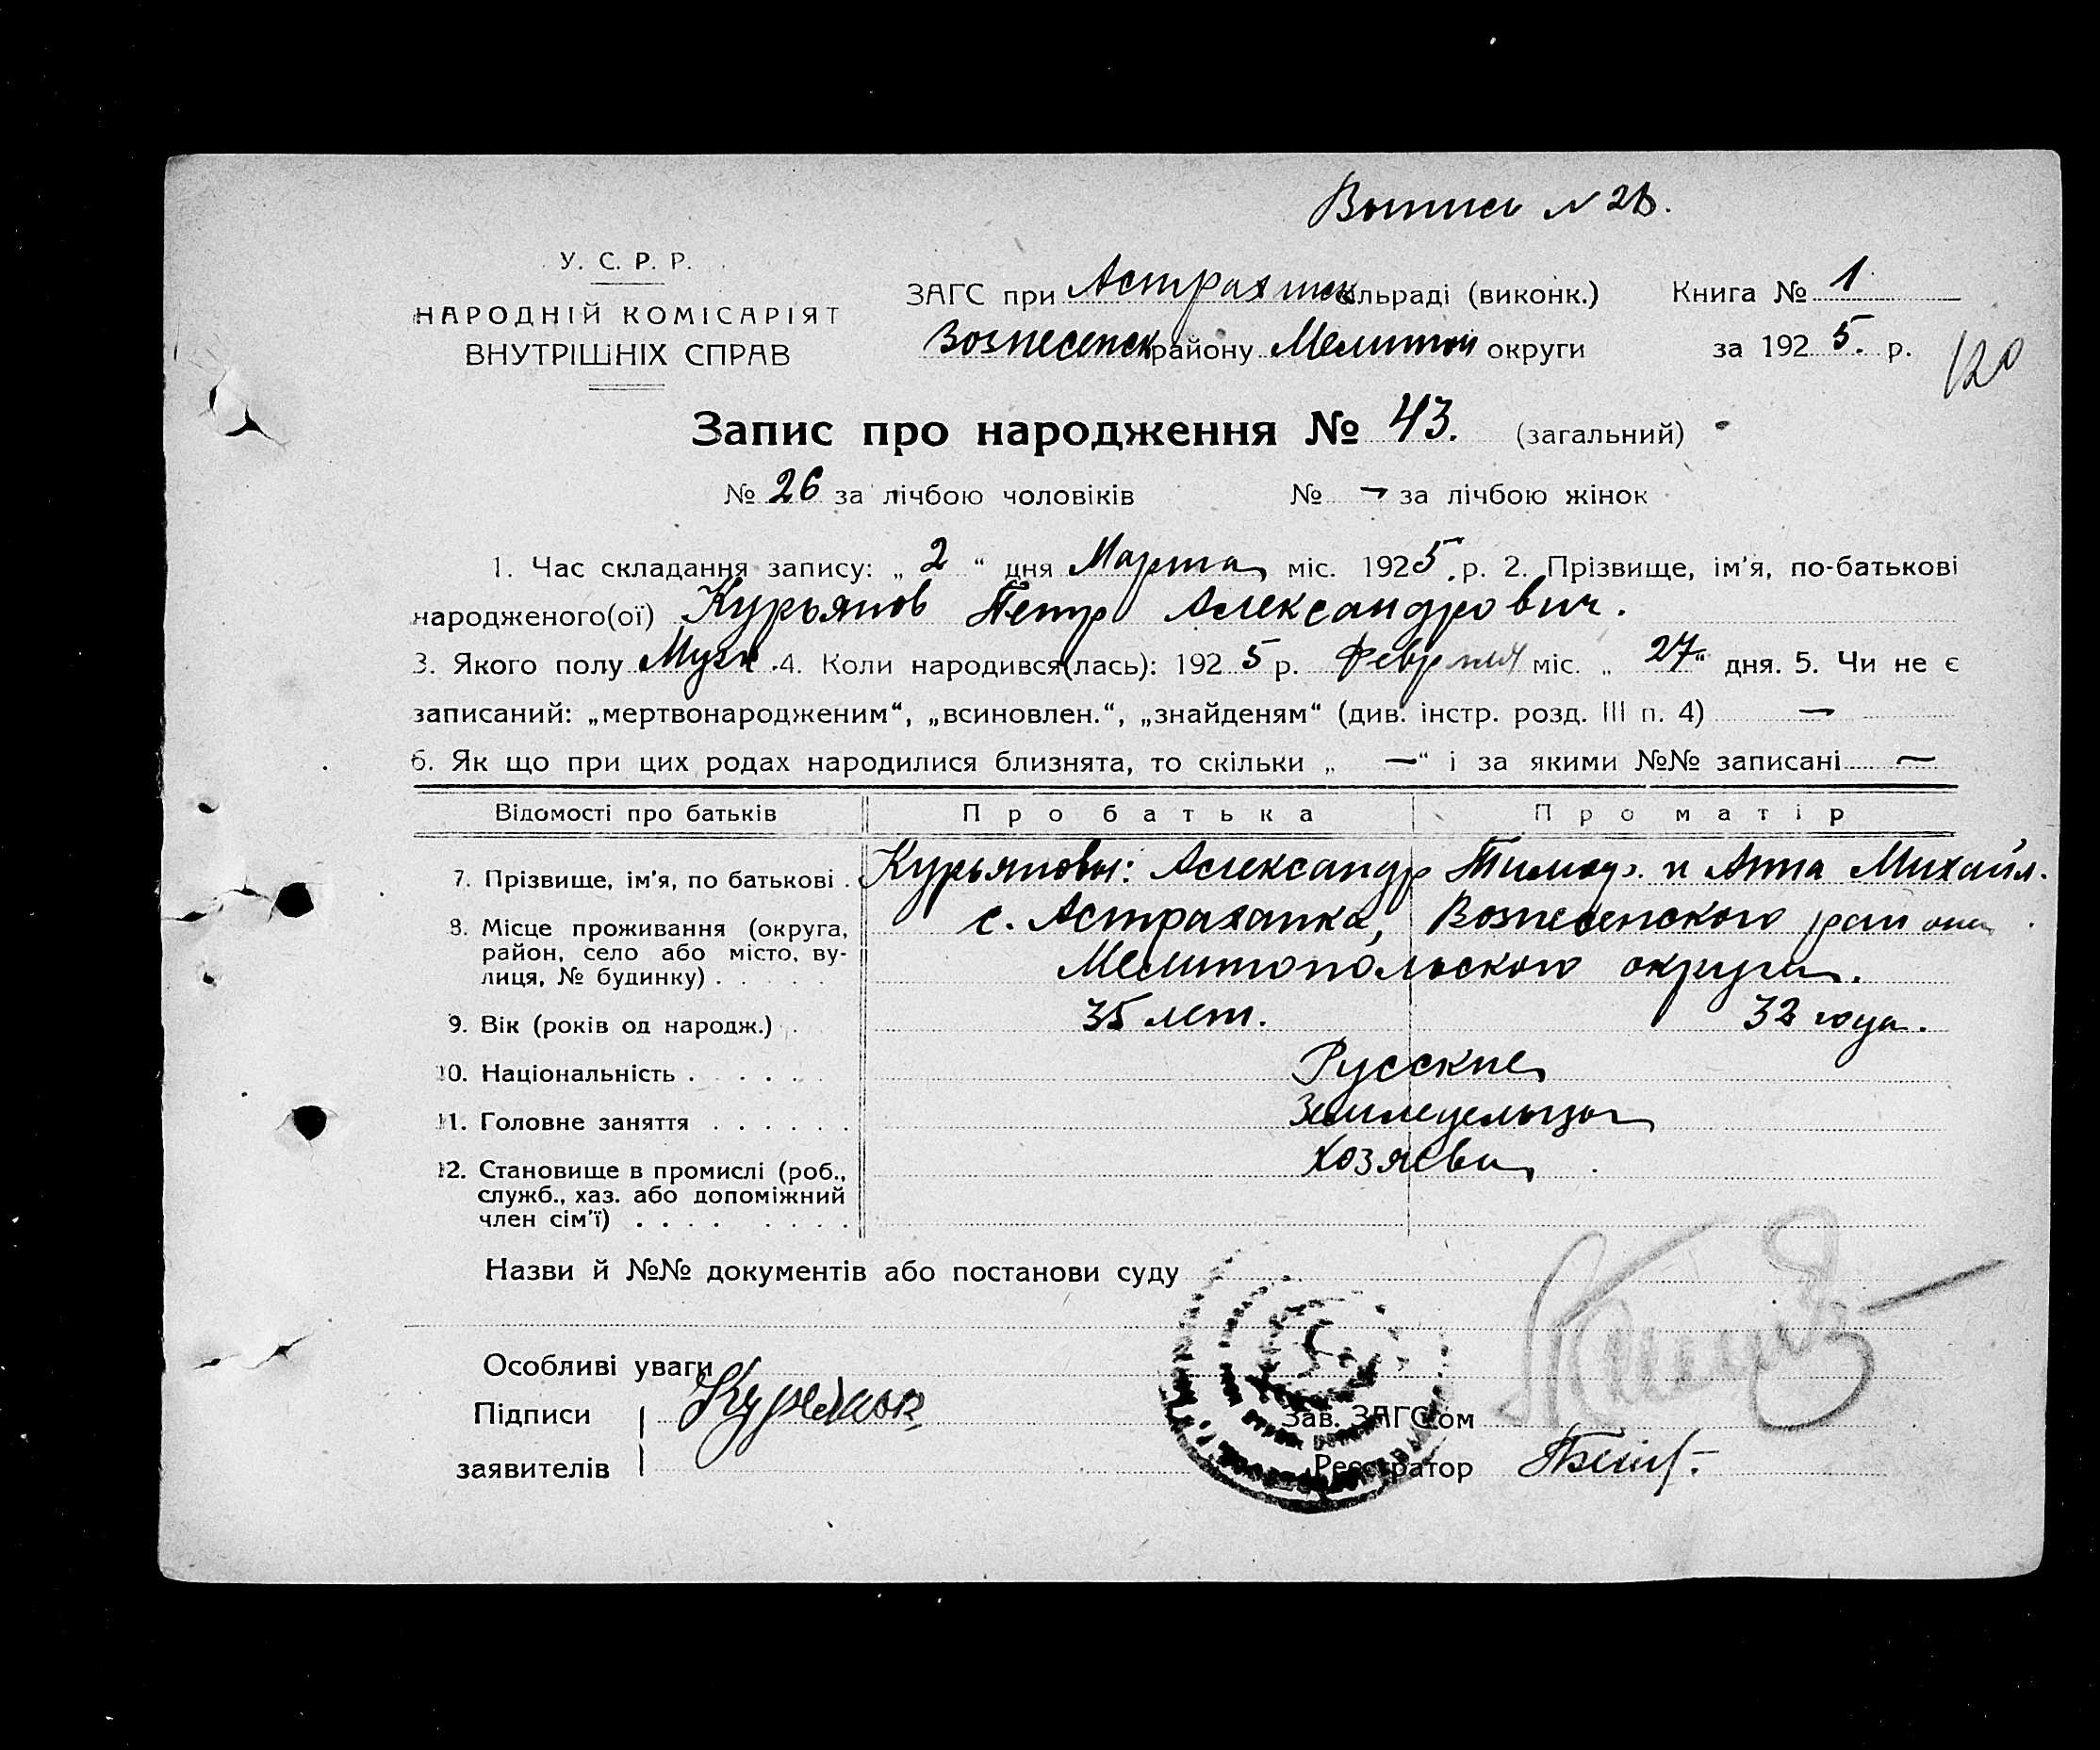 Выпись № 28.
У. С. Р. Р.
НАРОДНІЙ КОМІСАРІЯТ
ВНУТРІШНІХ СПРАВ
ЗАГС при Астраханск сільраді (виконк.) Книга № 1
Вознесенск району Мелитоп округи за 1925. р.
120
Запис про народження № 43. (загальний)
№ 26 за лічбою чоловіків № — за лічбою жінок
1. Час складання запису: „ 2 “ дня Марта міс. 1925. р. 2. Прізвище, ім'я, по-батькові
народженого(ої) Курьянов Петр Александрович.
3. Якого полу Муж. 4. Коли народився(лась): 1925 р. Февраля міс. „ 27 “ дня. 5. Чи не є
записаний: „мертвонародженим“, „всиновлен.“, „знайденям“ (див. інстр. розд. III п. 4) —
6. Як що при цих родах народилися близнята, то скільки „ — “ і за якими №№ записані —
Відомості про батьків Про батька Про матір
7. Прізвище, ім'я, по батькові . Курьяновы: Александр Тимоф. и Анна Михайл.
8. Місце проживання (округа, с. Астраханка, Вознесенского района
район, село або місто, ву- Мелитопольского округа.
лиця, № будинку) . . . . .
9. Вік (років од народж.) . 35 лет. 32 года.
10. Національність . . . . . Русские
11. Головне заняття . . . . . . Земледельцы
12. Становище в промислі (роб., Хозяева
служб., хаз. або допоміжний
член сім'ї) . . . . . . . .
Назви й №№ документів або постанови суду
Особливі уваги
Підписи Курьянов
заявителів
Зав. ЗАГС'ом
Реєстратор